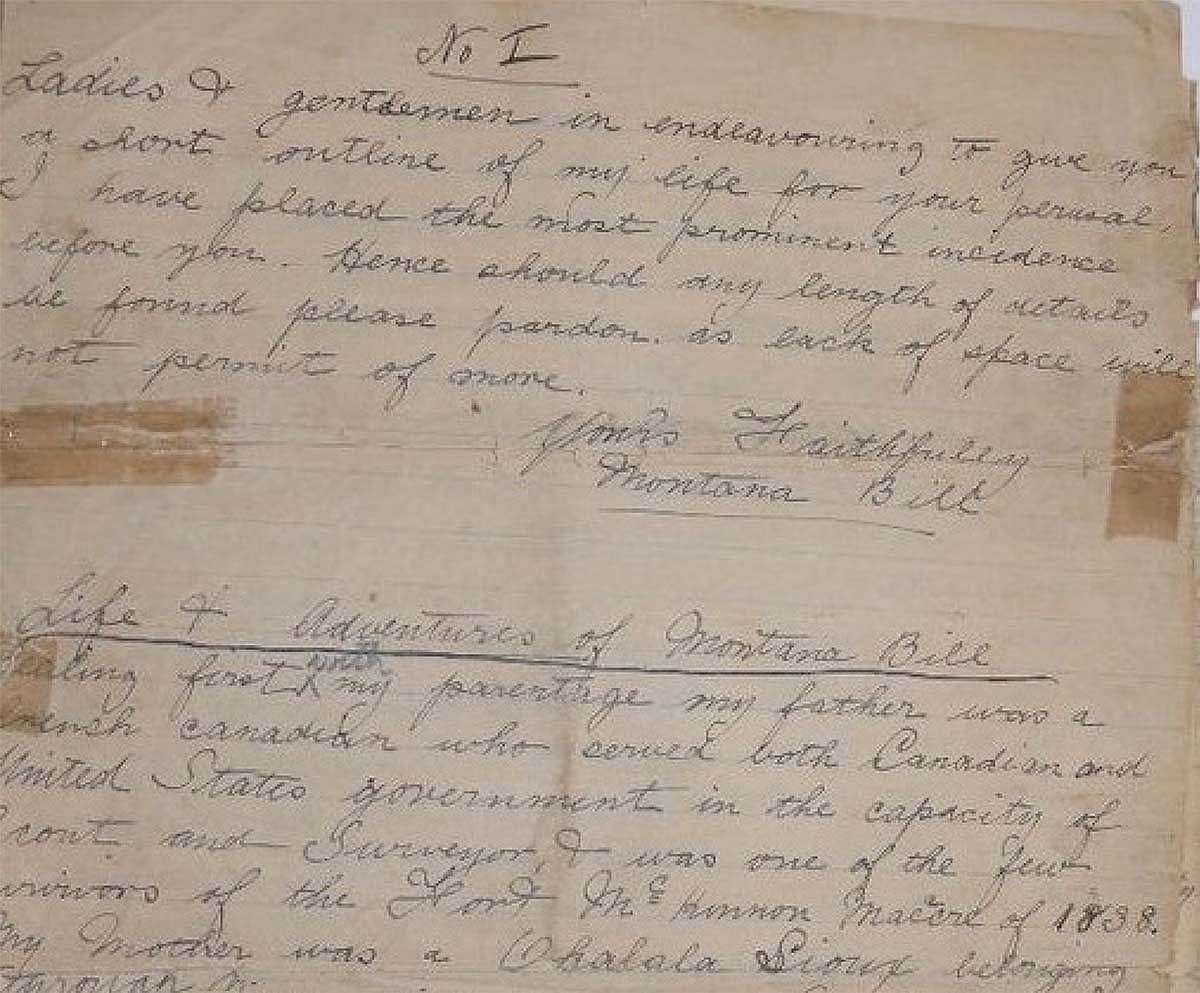 No I
Ladies & gentlemen in endeavouring to give you
a short outline of my life for your perusal,
I have placed the most prominent incidence
before you. Hence should any length of details
be found please pardon. as lack of space will
not permit of more.
Yours Faithfully
Montana Bill
Life & Adventures of Montana Bill
Dealing first with my parentage my father was a
French canadian who served both Canadian and
United States government in the capacity of
Scout and Surveyor, & was one of the few
survivors of the Fort Mc Konnon Macere of 1838.
My Mother was a Okalala Sioux belonging
through